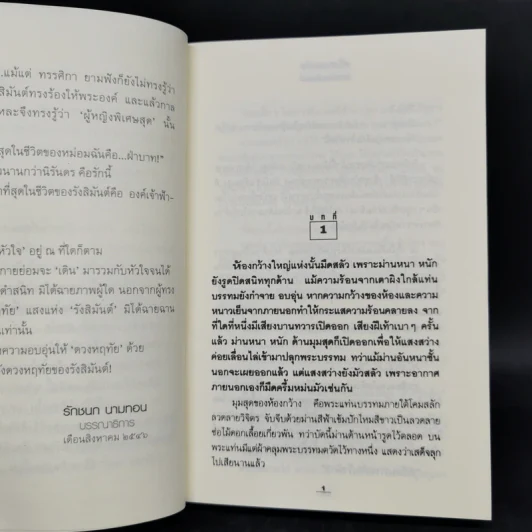 ..แม้แต่ ทรรศิกา ยามฟังก็ยังไม่ทรงรู้ว่า
สิมันต์ทรงร้องให้พระองค์ และแล้วกาล
หละจึงทรงรู้ว่า ‘ผู้หญิงพิเศษสุด’ นั้น
สุดในชีวิตของหม่อมฉันคือ...ฝ่าบาท!”
มนานกว่านิรันดร คือรักนี้
าที่สุดในชีวิตของรังสิมันต์คือ องค์เจ้าฟ้า-
หัวใจ’ อยู่ ณ ที่ใดก็ตาม
กายย่อมจะ ‘เดิน’ มารวมกับหัวใจจนได้
ดำสนิท มิได้ฉายภาพผู้ใด นอกจากผู้ทรง
ทัย’ แสงแห่ง ‘รังสิมันต์’ มิได้ฉายฉาน
เท่านั้น
งความอบอุ่นให้ ‘ดวงหฤทัย’ ด้วย
งดวงหฤทัยของรังสิมันต์!
รักชนก นามทอน
บรรณาธิการ
เดือนสิงหาคม ๒๕๔๖
บทที่
1
ห้องกว้างใหญ่แห่งนั้นมืดสลัว เพราะม่านหนา หนัก
ยังรูดปิดสนิททุกด้าน แม้ความร้อนจากเตาผิงใกล้แท่น
บรรทมยังกำจาย อบอุ่น หากความกว้างของห้องและความ
หนาวเย็นจากภายนอกทำให้กระแสความร้อนคลายลง จาก
ที่ใดที่หนึ่งมีเสียงบานทวารเปิดออก เสียงฝีเท้าเบาๆ ครั้น
แล้ว ม่านหนา หนัก ด้านมุมสุดก็เปิดออกเพื่อให้แสงสว่าง
ค่อยเลื่อนไล่เข้ามาปลุกพระบรรทม ทว่าแม้ม่านอันหนาชั้น
นอกจะเผยออกแล้ว แต่แสงสว่างยังมัวสลัว เพราะอากาศ
ภายนอกเองก็มืดครึ้มหม่นมัวเช่นกัน
มุมสุดของห้องกว้าง คือพระแท่นบรรทมภายใต้โคมสลัก
ลวดลายวิจิตร จับจีบด้วยม่านสีฟ้าเข้มปักไหมสีขาวเป็นลวดลาย
ช่อไม้ดอกเลื้อยเกี่ยวพัน ทว่าบัดนี้ม่านด้านหน้ารูดไว้ตลอด บน
พระแท่นมีแต่ผ้าคลุมพระบรรทมตวัดไว้ทางหนึ่ง แสดงว่าเสด็จลุก
ไปเสียนานแล้ว
๑